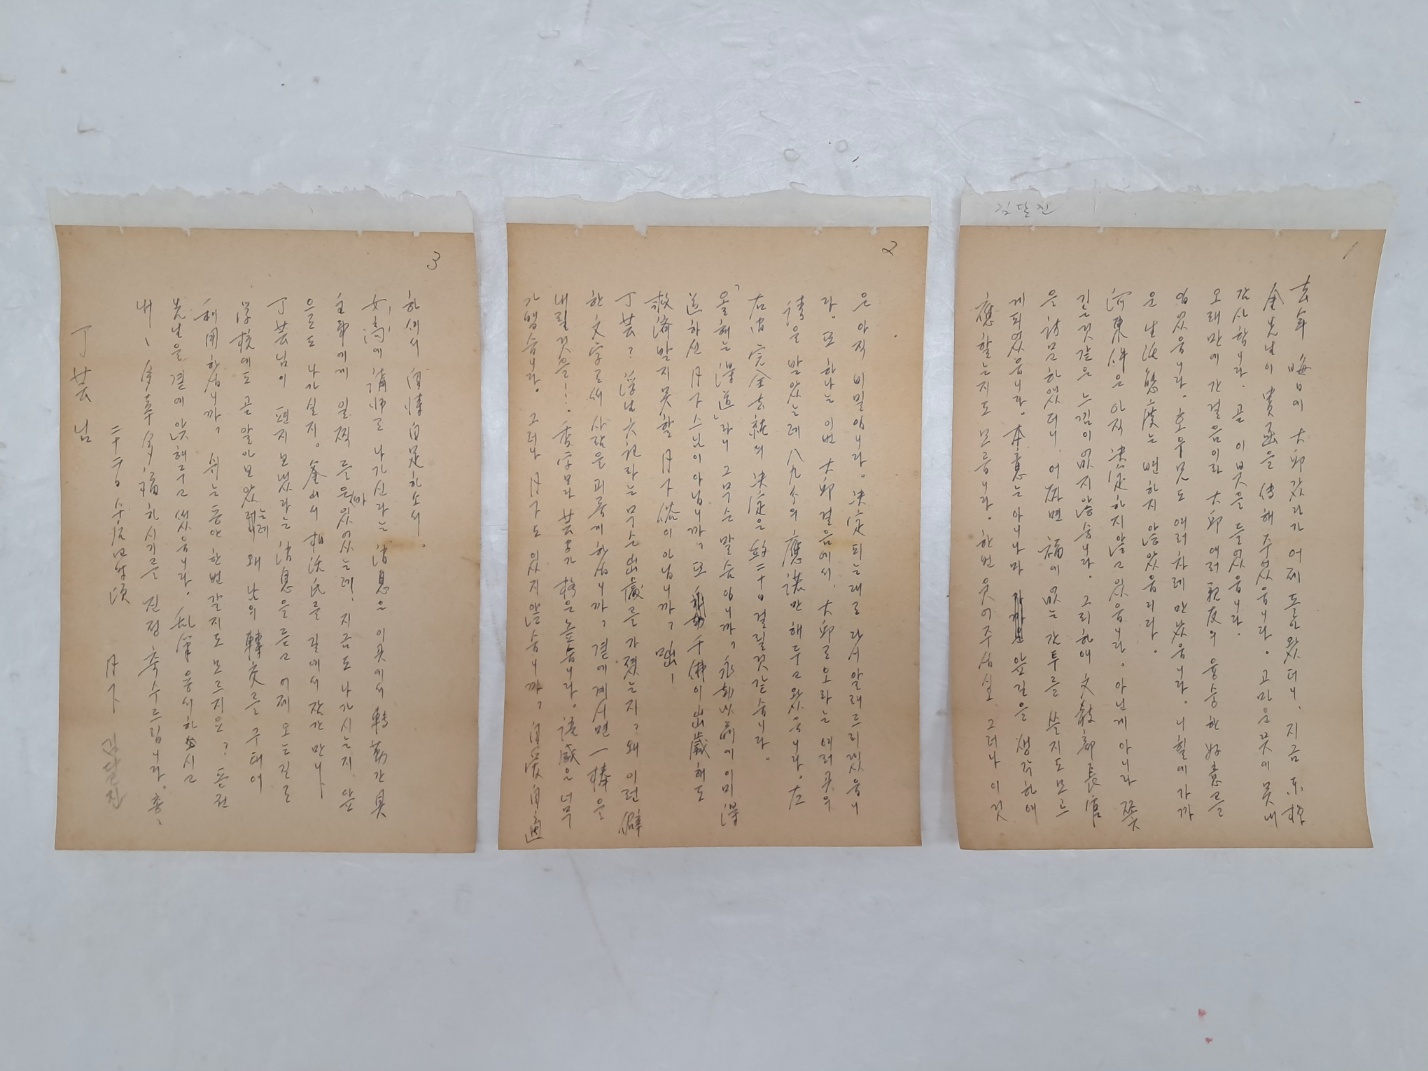 김달진
1
去年 晦日에 大邱갔다가 어제 돌아왔더니, 지금 東括
金先生이 貴函을 傳해 주었읍니다. 고마운 뜻에 못내
감사합니다. 곧 이 붓을 들었읍니다.
오래만에 간 걸음이라 大邱 여러 親友의 융숭한 好意를
입었읍니다. 호우兄도 여러 차례 만났읍니다. 니힐에 가까
운 生活態度는 변하지 않았읍디다.
河東件은 아직 決定하지 않고 있읍니다. 아닌게 아니라
길 것 같은 느낌이 없지 않습니다. 그리하여 文敎部長官
을 訪問하였더니, 어쩌면 福이 없는 간투를 쓸지도 모르
게 되었읍니다. 本意는 아니나마 앞길을 생각하여
應할는지도 모릅니다. 한번 웃어주십시오. 그러나 이것
2
은 아직 비밀입니다. 決定되는대로 다시 알려드리겠읍니
다. 또 하나는 이번 大邱 걸음에서, 大邱로 오라는 여러 곳의
請을 받았는데 八九分의 應諾만 해두고 왔읍니다. 左
右間 完全去就의 決定은 約 二十日 걸릴 것 같습니다.
「올해는 得道」라니 그 무슨 말씀입니까? 永劫以前에 이미 得
道하신 月下스님이 아닙니까? 또 千佛이 出歲해도
救濟받지 못할 月下俗이 아닙니까? 咄!
丁芸? 得남六親라는 무슨 出歲를 가졌는지? 왜 이런 僻
한 文字로써 사람을 괴롭게 하십니까? 곁에 계시면 一棒을
내릴 것을!. 香字보다 芸字가 格은 높습니다. 該感은 너무
가볍습니다. 그러나 月下도 있지 않습니까? 自愛自適
3
하셔서 自情自足하소서.
女高에 講師로 나가신다는 消息은 이곳에서 轉勤간 吳
主事에게 일찍 들은바 있었는데! 지금도 나가시는지 앞
으로도 나가실지. 釜山서 相浹氏를 길에서 잠간 만나
丁芸님이 편지 보냈다는 消息을 듣고 어제 오는 길로
學校에도 곧 알아보았는데 왜 남의 轉交를 구태여
利用하십니까? 쉬는 동안 한번 갈지도 모르지요? 동전
先生을 곁에 앉혀두고 썼읍니다. 亂筆 용서하십시고
내내 多幸多福하시기를 진정 축수드립니다. 총총
二十二日
月下
김달진
丁芸님